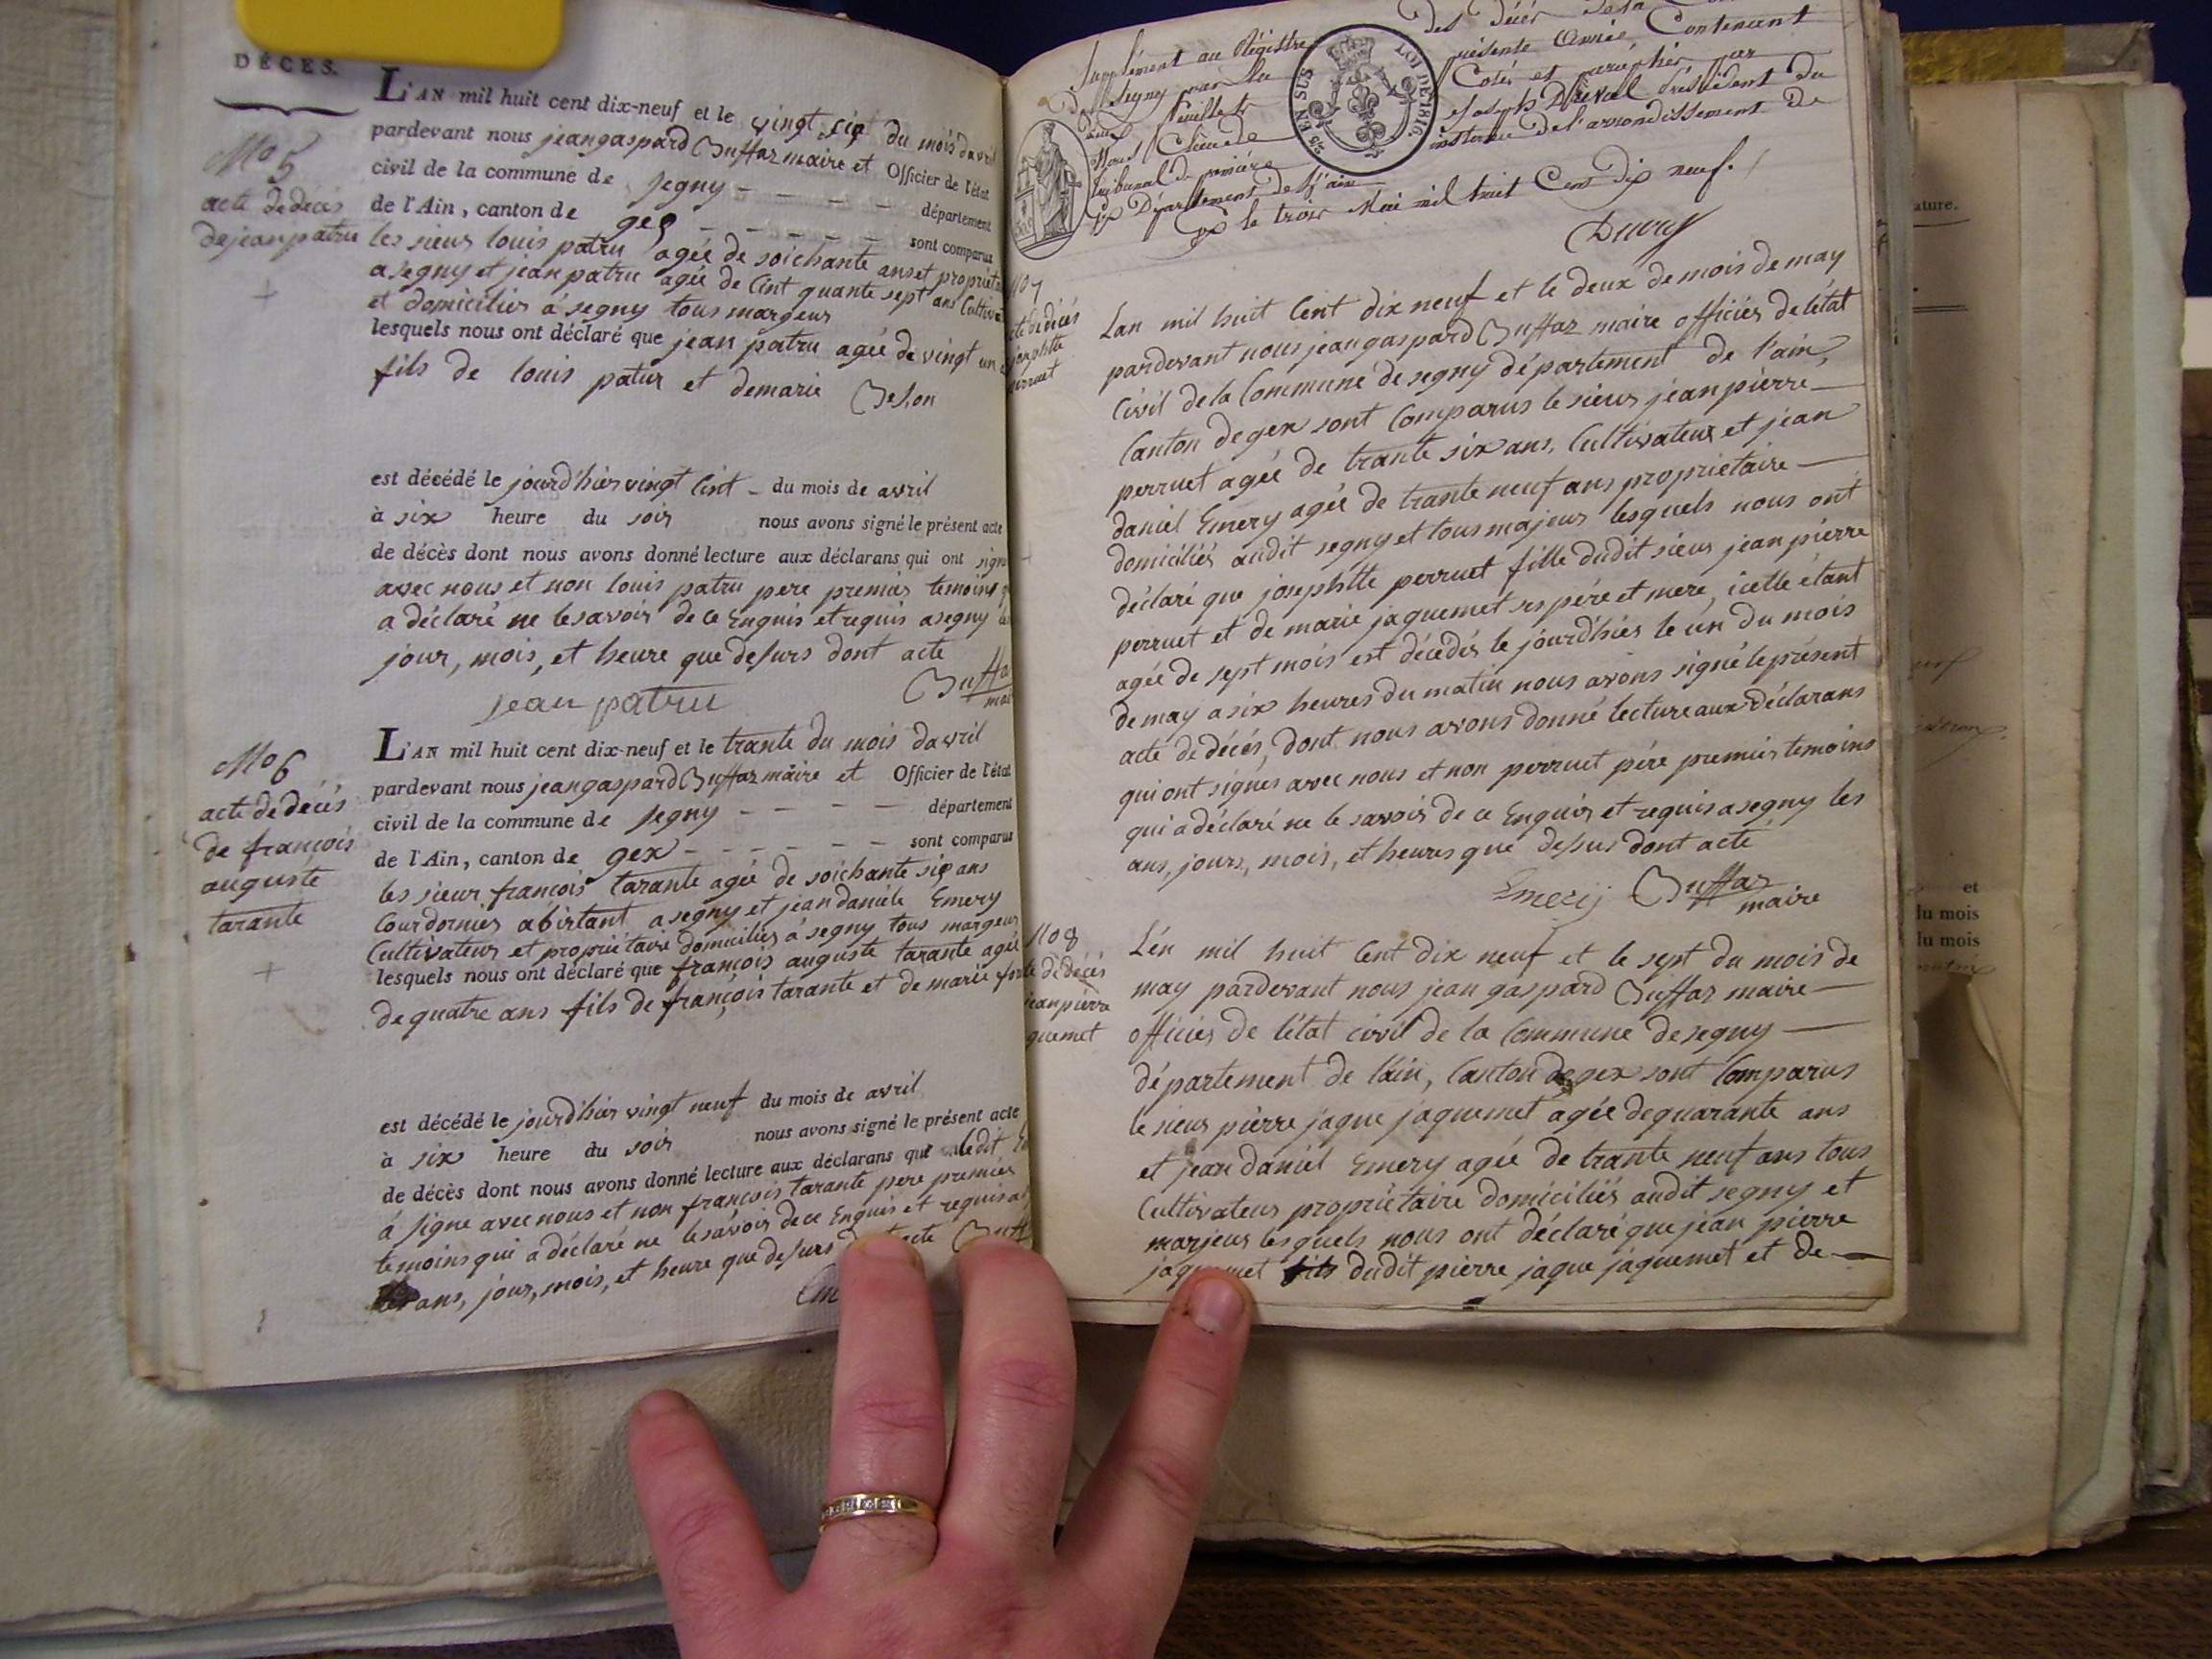 DÉCÈS.
No 5
acte de décès
de jean patru
L'AN mil huit cent dix-neuf et le vingt six du mois davril
pardevant nous jean gaspard Buffaz maire et Officier de l'état
civil de la commune de segny département
de l'Ain, canton de gex sont comparus
les sieurs louis patru agée de soichante ans et propriet
a segny et jean patru agée de Cint quante sept ans Cultiva
et domiciliés à segny tous margeurs
lesquels nous ont déclaré que jean patru agée de vingt un
fils de louis patur et demarie
est décédé le jourd'hiér vingt Cint du mois de avril
à six heure du soir nous avons signé le présent acte
de décès dont nous avons donné lecture aux déclarans qui ont signé
avec nous et non louis patru pere premier temoins
a déclaré ne le savoir de ce Enquis et requis a segny
jour, mois, et heure que desurs dont acte
jean patru Buffa
No 6
acte de décès
de françois
auguste
tarante
L'AN mil huit cent dix-neuf et le trante du mois davril
pardevant nous jean gaspard Buffaz maire et Officier de l'état
civil de la commune de segny département
de l'Ain, canton de gex sont comparus
les sieur françois tarante agée de soichante six ans
Courdonnier abirtant a segny et jean daniele Emery
Cultivateur et propriétaire domiciliés à segny tous margeurs
lesquels nous ont déclaré que françois auguste tarante agée
de quatre ans fils de françois tarante et de marie
est décédé le jourd'hiér vingt neuf du mois de avril
à six heure du soir nous avons signé le présent acte
de décès dont nous avons donné lecture aux déclarans que ledit
à signe avec nous et non françois tarante pere premier
temoins qui a déclaré ne le savoir de ce Enquis et requis a
ans, jour, mois, et heure que desurs acte Buff
Em
Supplément au Régistre des décés de la
de Segny pour la présente Année, Contenant
deux feuillets Cotés et paraphés par
Nous Joseph Duval Président du
tribunal de première instance de l'arrondissement de
Gex Département de l'ain
Gex le trois Mai mil huit Cent dix neuf.
LOI DE 1816.
EN SUS
Duval
No 7
acte de décès
josephtte
perruet
Lan mil huit Cent dix neuf et le deux de mois de may
pardevant nous jean gaspard Buffaz maire officiér de l'état
Civil de la Commune de segny département de l'ain,
Canton de gex sont Comparus le sieur jean pierre
perruet agée de trante six ans, Cultivateur et jean
daniel Emery agée de trante neuf ans proprietaire
domiciliés audit segny et tous majeur lesquels nous ont
déclaré que josephtte perruet fille dudit sieur jean pierre
perruet et de marie jaquemet ses pére et mere, icelle étant
agée de sept mois est décédés le jourd'hiér le un du mois
de may a six heures du matin nous avons signé le présent
acte de décés, dont nous avons donné lecture aux déclarans
qui ont signes avec nous et non perruet pére premier temoins
qui a déclaré ne le savoir de ce Enquis et requis a segny les
ans, jours, mois, et heures que desus dont acte
Emery Buffaz
maire
No 8
acte de décés
jean pierre
quemet
L'én mil huit Cent dix neuf et le sept du mois de
may pardevant nous jean gaspard Buffaz maire
officiér de l'état civil de la Commune de segny
département de l'ain, Canton de gex sont Comparus
le sieur pierre jaque jaquemet agée de quarante ans
et jean daniel Emery agée de trante neuf ans tous
Cultivateur propriétaire domiciliés audit segny et
marjeur lesquels nous ont déclaré que jean pierre
jaquemet fils dudit pierre jaque jaquemet et de
ature.
et
du mois
du mois